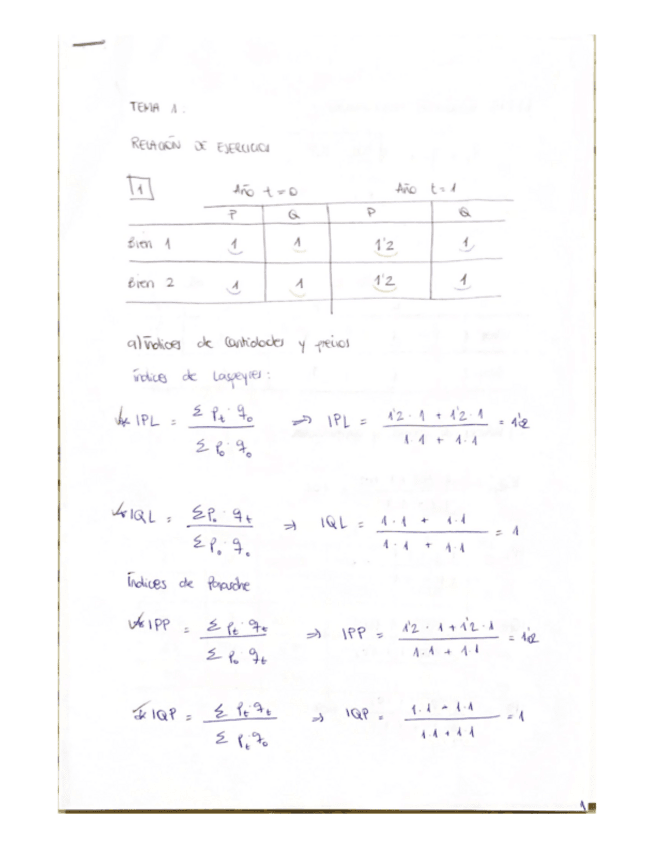 TEMA 1:
RELACIÓN DE EJERCICIOS
1 Año t=0 Año t=1
P Q P Q
Bien 1 1 1 1'2 1
Bien 2 1 1 1'2 1
a) Índices de Cantidades y precios
índices de Laspeyres:
* IPL = Σ Pt · q0 / Σ P0 · q0 ⇒ IPL = 1'2 · 1 + 1'2 · 1 / 1·1 + 1·1 = 1'2
* IQL = Σ P0 · qt / Σ P0 · q0 ⇒ IQL = 1·1 + 1·1 / 1·1 + 1·1 = 1
Índices de Paasche
* IPP = Σ Pt · qt / Σ P0 · qt ⇒ IPP = 1'2 · 1 + 1'2 · 1 / 1·1 + 1·1 = 1'2
* IQP = Σ Pt · qt / Σ Pt · q0 ⇒ IQP = 1·1 + 1·1 / 1·1 + 1·1 = 1
1